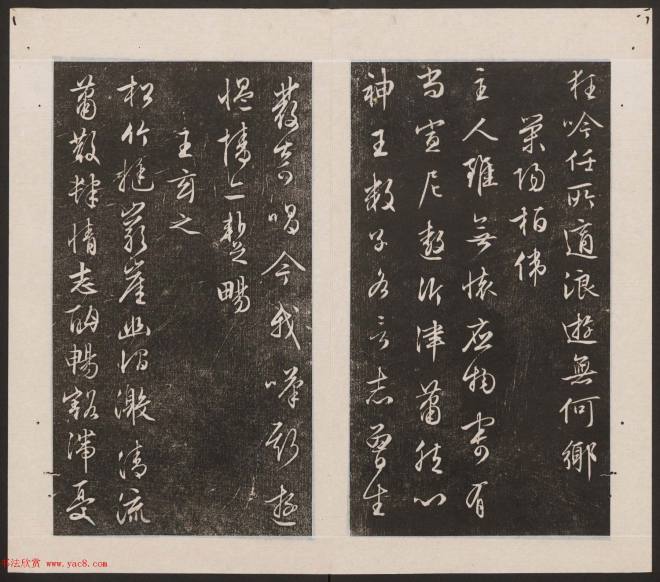 狂吟任所適浪遊無何鄉
滎陽桓偉
主人雖無懷應物寄有
尚宣尼遨沂津蕭然心
神王數子各言志曾生
發奇唱今我嘆斯遊
慍情亦暫暢
王玄之
松竹挺巖崖幽澗激清流
蕭散肆情志酣暢豁滯憂
书法欣赏 www.yac8.com